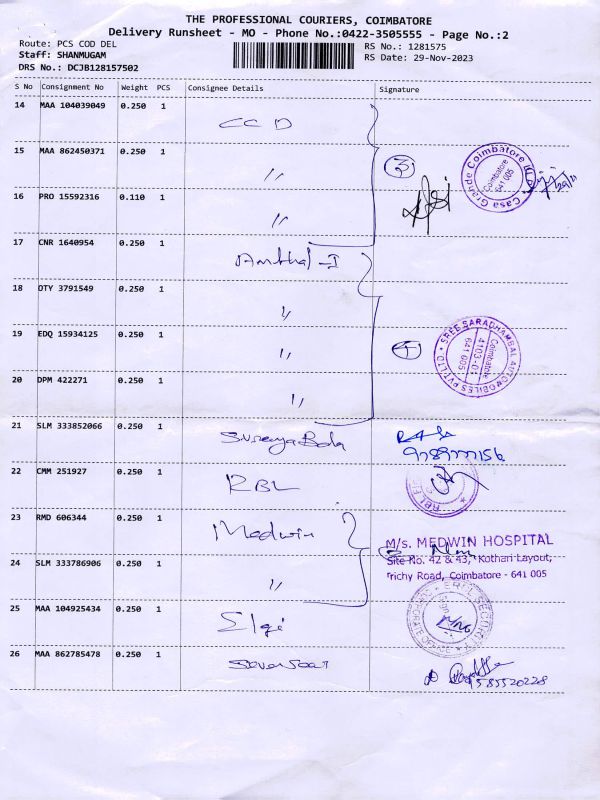 THE PROFESSIONAL COURIERS, COIMBATORE
Delivery Runsheet - MO - Phone No.:0422-3505555 - Page No.:2
Route: PCS COD DEL
RS No.: 1281575
Staff: SHANMUGAM
RS Date: 29-Nov-2023
DRS No.: DCJB128157502
S No Consignment No Weight PCS Consignee Details Signature
14 MAA 104039049 0.250 1 CCD
15 MAA 862450371 0.250 1 〃 3
Casa Grande Coimbatore LLP
Coimbatore 641 005
16 PRO 15592316 0.110 1 〃
17 CNR 1640954 0.250 1
18 OTY 3791549 0.250 1 〃
19 EDQ 15934125 0.250 1 〃 4
SREE SARADHAMBAL AUTOMOBILES PVT LTD
Coimbatore 641 005
20 DPM 422271 0.250 1 〃
21 SLM 333852066 0.250 1
22 CMM 251927 0.250 1 RBL
23 RMD 606344 0.250 1 Medwin
M/s. MEDWIN HOSPITAL
Site No. 42 & 43, Kothari Layout,
Trichy Road, Coimbatore - 641 005
24 SLM 333786906 0.250 1 〃
25 MAA 104925434 0.250 1 Elgi
CORPORATE OFFICE
26 MAA 862785478 0.250 1